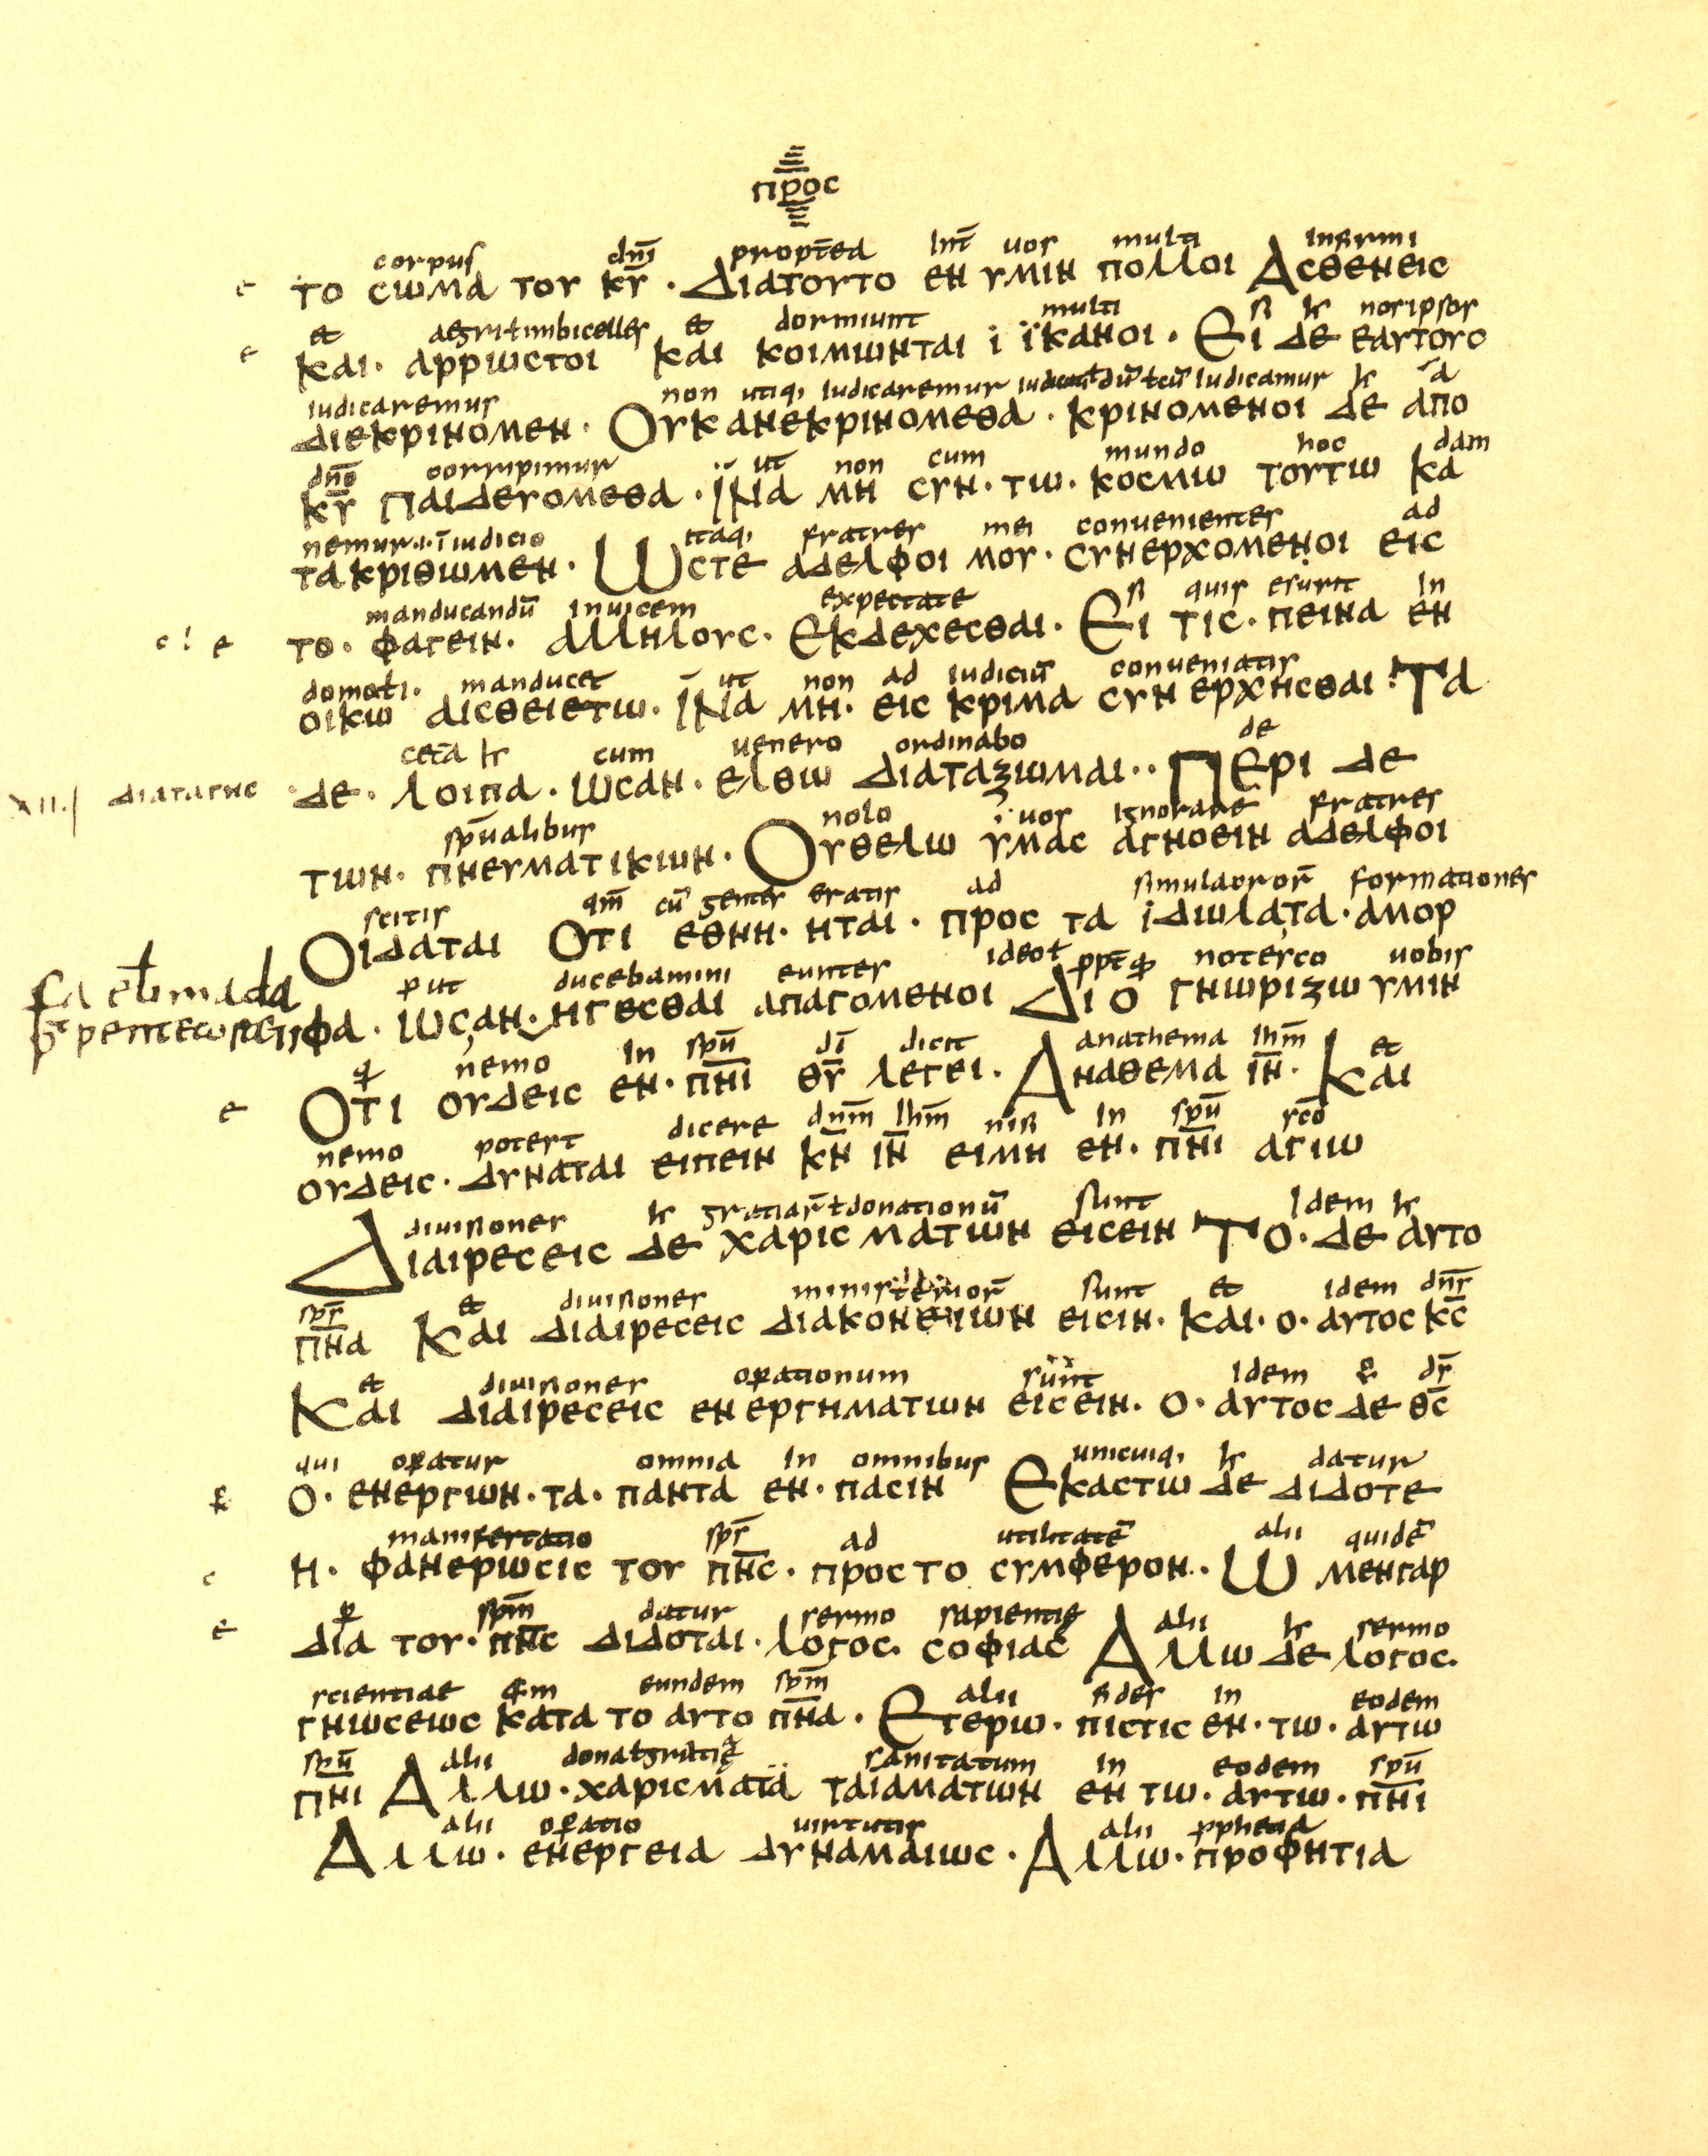 προς
corpus dn̄i propt̄ea Int̄ uos multi Infirmi
το σωμα του κ̄υ · Διατουτο εν υμιν πολλοι Ασθενεις
et aegri ł imbicelles et dormiunt multi si h̵ nosipsos
και · αρρωστοι και κοιμωνται ι ϊκανοι · Ει δε εαυτους
Iudicaremus non utiq, Iudicaremur ł cū Iudicamur h̵ a
διεκρινομεν · Ουκ ανεκρινομεθα · κρινομενοι δε απο
dn̄o corripimur ut non cum mundo hoc dam
κ̄υ Παιδευομεθα · ϊΝα μη συν · τω · κοσμω τουτω κα
nemur ·i· ī iudicio itaq, fratres mei conuenientes ad
τακριθωμεν · Ωστε αδελφοι μου · συνερχομενοι εις
manducandū Inuicem expectate si quis esurit In
c ! e το · φαγειν · αλληλους · Εκδεχεσθαι · Ει τις · πεινα εν
domo manducet ut non ad Iudiciū conueniatis
οικω αισθειετω · ϊΝα μη · εις κριμα συν ερχησθαι · Τα
cet̄a h̵ cum uenero ordinabo de
XII. διαταγης δε · λοιπα · ωσαν · ελθω διαταζωμαι · · Περι δε
sp̄ualibus nolo uos Ignorare fratres
των · πνευματικων · Ουθελω υμας αγνοειν αδελφοι
scitis qm̄ cū gentes eratis ad simulacror̄ formationes
Οιδαται Οτι εθνη · ηται · προς τα ιδωλατα · αμορ
put ducebamini euntes ideo ł ppt̄ qd notesco uobis
φα · ωσαν · ηγεσθαι απαγομενοι Διο γνωριζω υμιν
qd nemo In sp̄u dī dicit anathema Ihm̄ et
e Οτι ουδεις εν · π̄ν̄ι θ̄υ λεγει · Αναθεμα ῑν̄ · Και
nemo potest dicere dnm̄ Ihm̄ nisi In sp̄u sc̄o
ουδεις · δυναται ειπειν κ̄ν ῑν ειμη εν · π̄ν̄ι αγιω
diuisiones h̵ gratiar̄ ł donationū sunt Idem h̵
Διαιρεσεις δε χαρισματων εισειν Το · δε αυτο
sp̄s et diuisiones ministerior̄ sunt et idem dn̄s
π̄ν̄α Και διαιρεσεις διακονειων εισιν · και · ο · αυτος κ̄ς
et diuisiones opationum sunt Idem h̵ ds̄
Και διαιρεσεις ενεργηματων εισειν · ο · αυτος δε θ̄ς
qui opatur omnia In omnibus unicuiq, h̵ datur
ο · ενεργων · τα · παντα εν · πασιν Εκαστω δε διδοτε
manifestatio sp̄s ad utilitatē alii quidē
η · φανερωσις του π̄ν̄ς · προς το συμφερον · Ω μενγαρ
p sp̄m datur sermo sapientię alii h̵ sermo
e δια του · π̄ν̄ς διδοται · λογος · σοφιας Αλλω δε λογος ·
scientiae eundem sp̄m alii fides in eodem
γνωσεως κατα το αυτο π̄ν̄α · Ετερω · πιστις εν · τω · αυτω
sp̄u alii dona ł gratię sanitatum in eodem sp̄u
π̄ν̄ι Αλλω · χαρισματα ταιαματων εν τω · αυτω · π̄ν̄ι
alii opatio uirtutis alii pphetia
Αλλω · ενεργεια δυναμαιως · Αλλω · προφητια